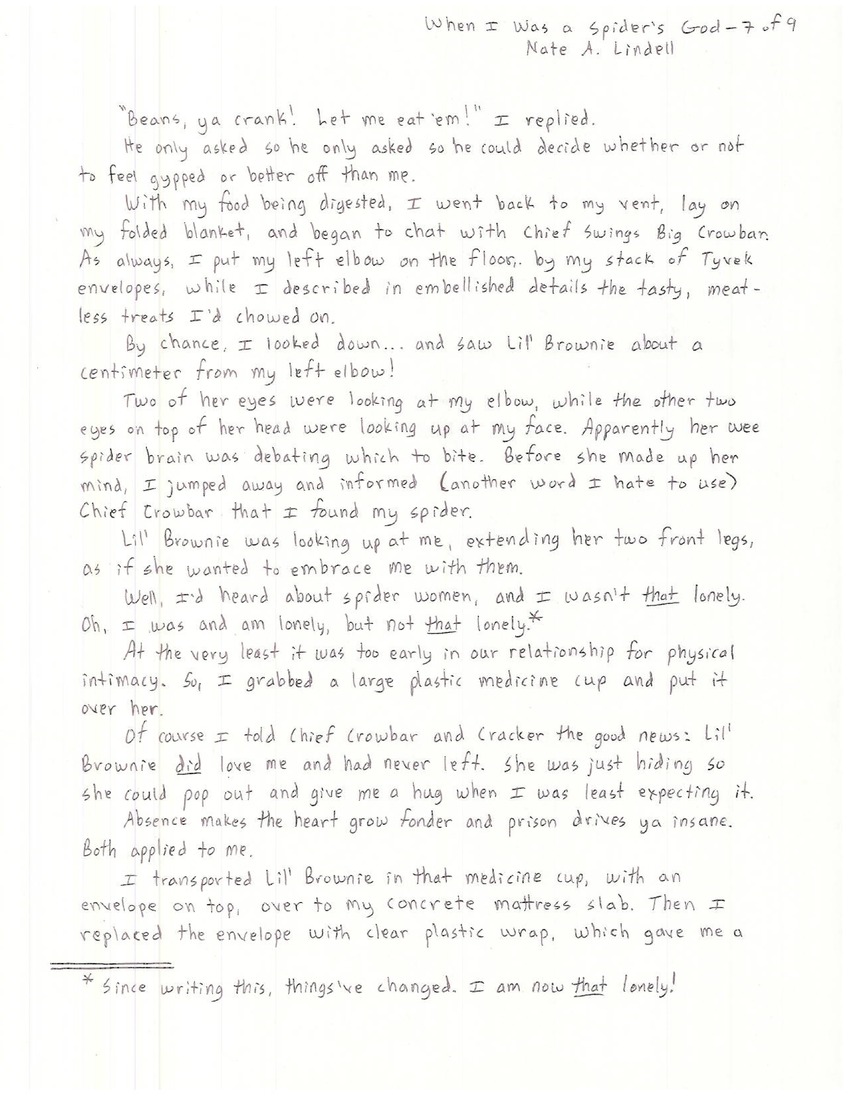 When I Was a Spider's God – 7 of 9
Nate A. Lindell
"Beans, ya crank! Let me eat 'em!" I replied.
He only asked so he only asked so he could decide whether or not
to feel gypped or better off than me.
With my food being digested, I went back to my vent, lay on
my folded blanket, and began to chat with Chief Swings Big Crowbar.
As always, I put my left elbow on the floor, by my stack of Tyvek
envelopes, while I described in embellished details the tasty, meat-
less treats I'd chowed on.
By chance, I looked down... and saw Lil' Brownie about a
centimeter from my left elbow!
Two of her eyes were looking at my elbow, while the other two
eyes on top of her head were looking up at my face. Apparently her wee
spider brain was debating which to bite. Before she made up her
mind, I jumped away and informed (another word I hate to use)
Chief Crowbar that I found my spider.
Lil' Brownie was looking up at me, extending her two front legs,
as if she wanted to embrace me with them.
Well, I'd heard about spider women, and I wasn't that lonely.
Oh, I was and am lonely, but not that lonely.*
At the very least it was too early in our relationship for physical
intimacy. So, I grabbed a large plastic medicine cup and put it
over her.
Of course I told Chief Crowbar and Cracker the good news: Lil'
Brownie did love me and had never left. She was just hiding so
she could pop out and give me a hug when I was least expecting it.
Absence makes the heart grow fonder and prison drives ya insane.
Both applied to me.
I transported Lil' Brownie in that medicine cup, with an
envelope on top, over to my concrete mattress slab. Then I
replaced the envelope with clear plastic wrap, which gave me a
* Since writing this, things've changed. I am now that lonely!